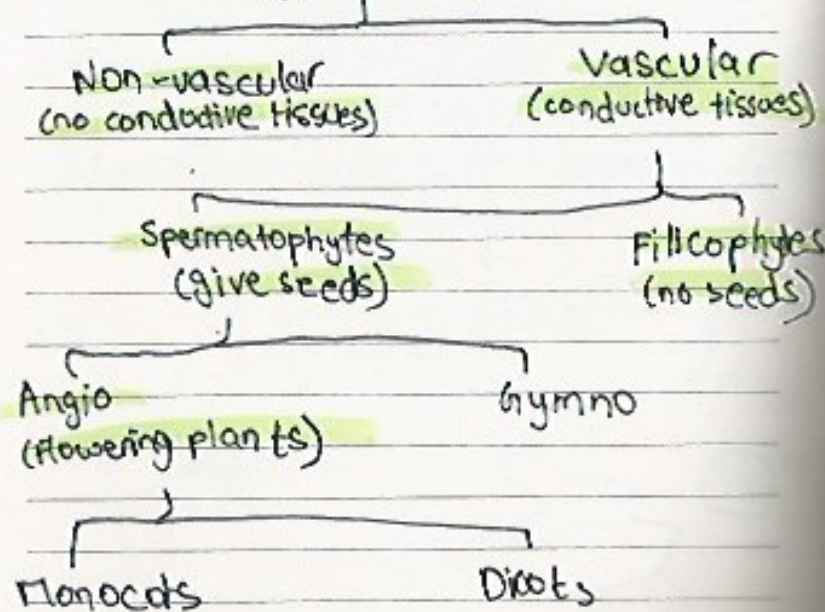 Non-vascular
(no conductive tissues)
Vascular
(conductive tissues)
Spermatophytes
(give seeds)
Fillicophytes
(no seeds)
Angio
(flowering plants)
Gymno
Monocots
Dicots